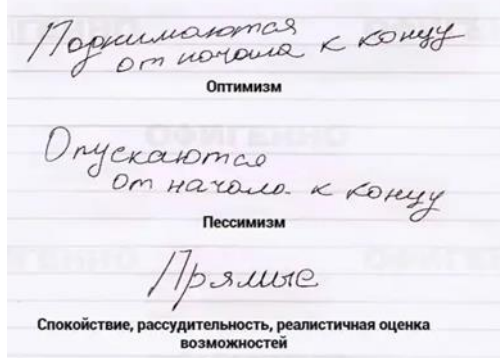 Поднимаются
от начала к концу
Оптимизм
Опускаются
от начала к концу
Пессимизм
Прямые
Спокойствие, рассудительность, реалистичная оценка
возможностей